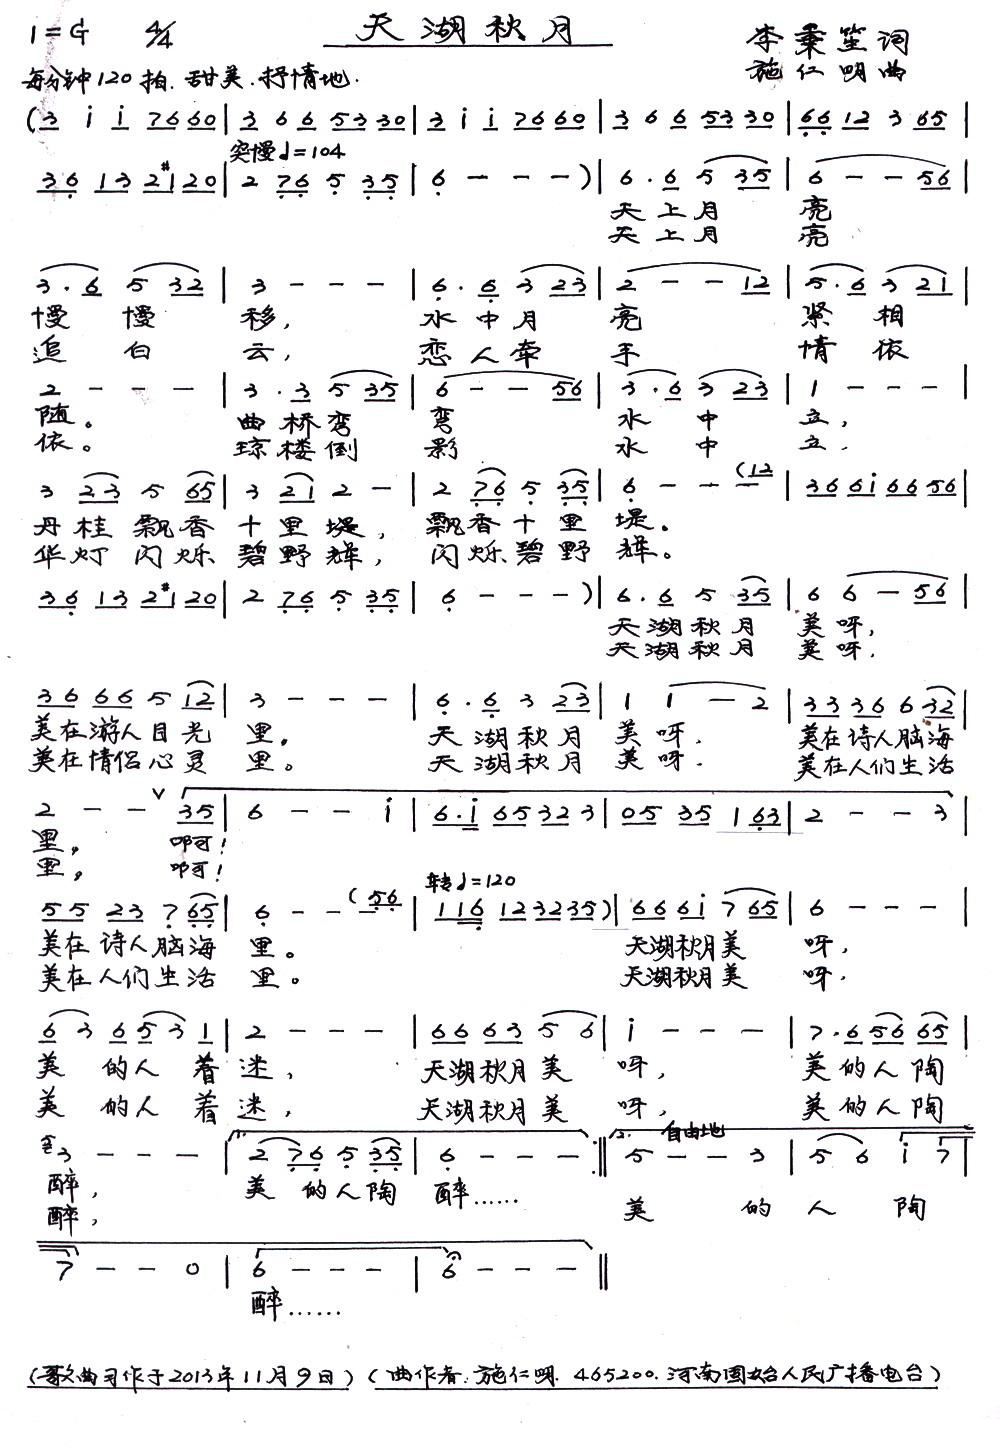 1=G 4/4 天湖秋月 李秉笙词
施仁明曲
每分钟120拍.甜美.抒情地.
(3 i i 7660 | 3 6 6 53 30 | 3 i i 7660 | 3 6 6 53 30 | 66 12 3 65 |
突慢♩=104
36 13 2#1 20 | 2 76 5 35 | 6 - - - ) | 6.6 5 35 | 6 - - 56 |
天上月 亮
天上月 亮
3.6 5 32 | 3 - - - | 6.6 3 23 | 2 - - 12 | 5.6 3 21 |
慢 慢 移, 水中月 亮 紧 相
追 白 云, 恋人牵 手 情 依
2 - - - | 3.3 5 35 | 6 - - 56 | 3.6 3 23 | 1 - - - |
随。 曲桥弯 弯 水 中 立,
依。 琼楼倒 影 水 中 立.
3 23 5 65 | 3 21 2 - | 2 76 5 35 | 6 - - (12 | 366i6656 |
丹桂飘香 十里堤, 飘香十里 堤。
华灯闪烁 碧野辉, 闪烁碧野 辉。
36 13 2#1 20 | 2 76 5 35 | 6 - - - ) | 6.6 5 35 | 6 6 - 56 |
天湖秋月 美呀,
天湖秋月 美呀.
36 66 5 12 | 3 - - - | 6.6 3 23 | 1 1 - 2 | 33 36 6 32 |
美在游人目光 里。 天湖秋月 美呀. 美在诗人脑海
美在情侣心灵 里。 天湖秋月 美呀. 美在人们生活
2 - - ∨ 35 | 6 - - i | 6.i 65 32 3 | 05 35 1 63 | 2 - - 3 |
里。 啊!
里, 啊!
转♩=120
55 23 7 65 | 6 - - (56 | 116 123235) | 666i 7 65 | 6 - - - |
美在诗人脑海 里。 天湖秋月美 呀,
美在人们生活 里。 天湖秋月美 呀.
6 3 6 5 3 1 | 2 - - - | 66 63 5 6 | i - - - | 7.6 56 65 |
美 的人 着 迷, 天湖秋月美 呀, 美的人陶
美 的人 着 迷, 天湖秋月美 呀, 美的人陶
1. 2. 自由地
3 - - - | 2 76 5 35 | 6 - - - :|| 5 - - 3 | 5 6 i 7 |
醉, 美 的人陶 醉…… 美 的 人 陶
醉,
7 - - 0 | 6 - - - | 6 - - - ||
醉……
(歌曲习作于2013年11月9日) (曲作者.施仁明. 465200.河南固始人民广播电台)